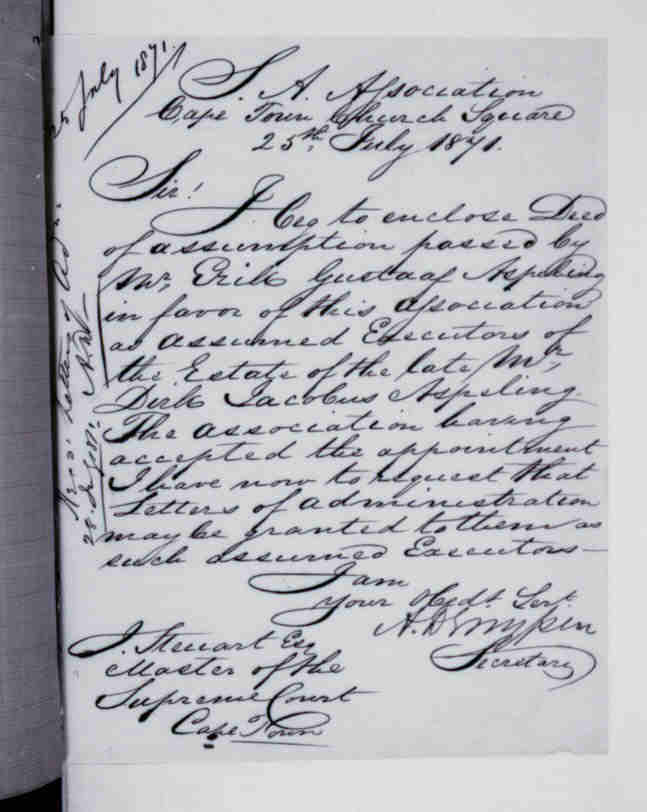 25 July 1871.
S. A. Association
Cape Town Church Square
25th July 1871.
Sir!
I beg to enclose Deed
of assumption passed by
Mr. Erik Gustaaf Aspeling
in favor of this association
as assumed Executors of
the Estate of the late Mr.
Dirk Jacobus Aspeling.
The association having
accepted the appointment
I have now to request that
Letters of administration
may be granted to them as
such assumed Executors—
I am
your Obedt. Servt.
Secretary
J. Steuart Esq
Master of the
Supreme Court
Cape Town
Letters of
28 July